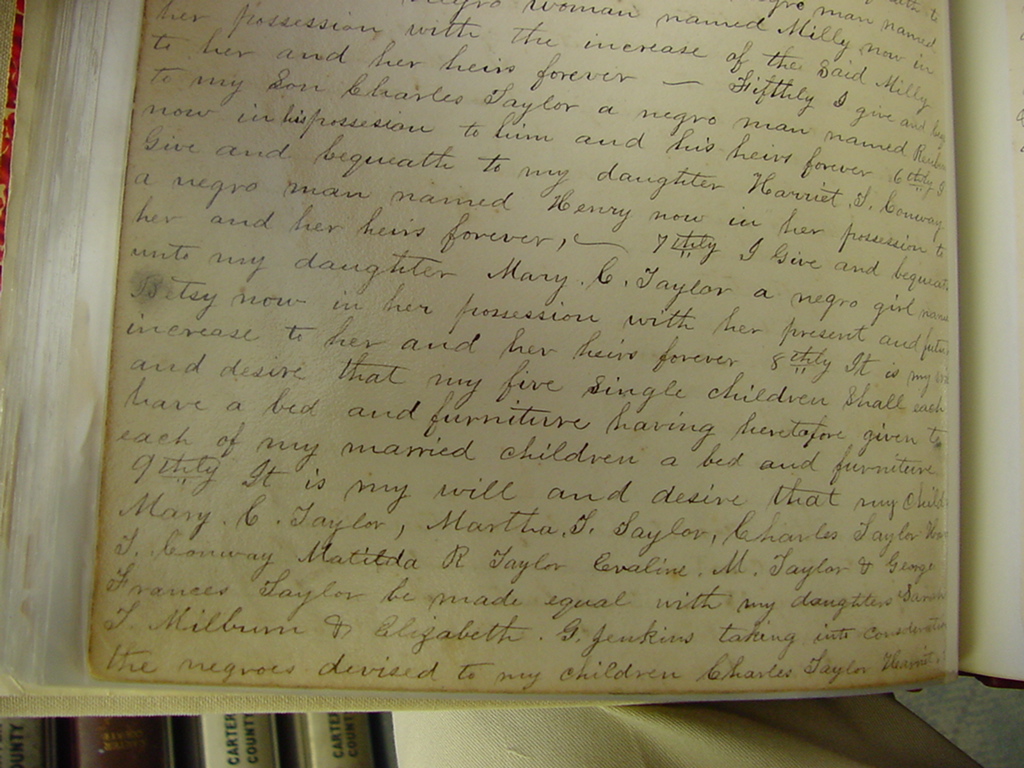 negro man
negro woman named Milly now in
her possession with the increase of the said Milly
to her and her heirs forever — Fifthly I give and
to my Son Charles Taylor a negro man named
now in his possession to him and his heirs forever 6thly I
Give and bequeath to my daughter Harriet J. Conway
a negro man named Henry now in her possession to
her and her heirs forever, — 7thly I Give and bequeath
unto my daughter Mary. C. Taylor a negro girl named
Betsy now in her possession with her present and future
increase to her and her heirs forever 8thly It is my
and desire that my five single children Shall each
have a bed and furniture having heretofore given to
each of my married children a bed and furniture
9thly It is my will and desire that my
Mary. C. Taylor, Martha. J. Taylor, Charles Taylor
J. Conway Matilda R Taylor Evaline. M. Taylor & George
Frances Taylor be made equal with my daughters
J Milburn & Elizabeth. G. Jenkins taking into consideration
the negroes devised to my children Charles Taylor Harriet
CARTER
COUNTY
CARTER
COUNTY
COUNTY